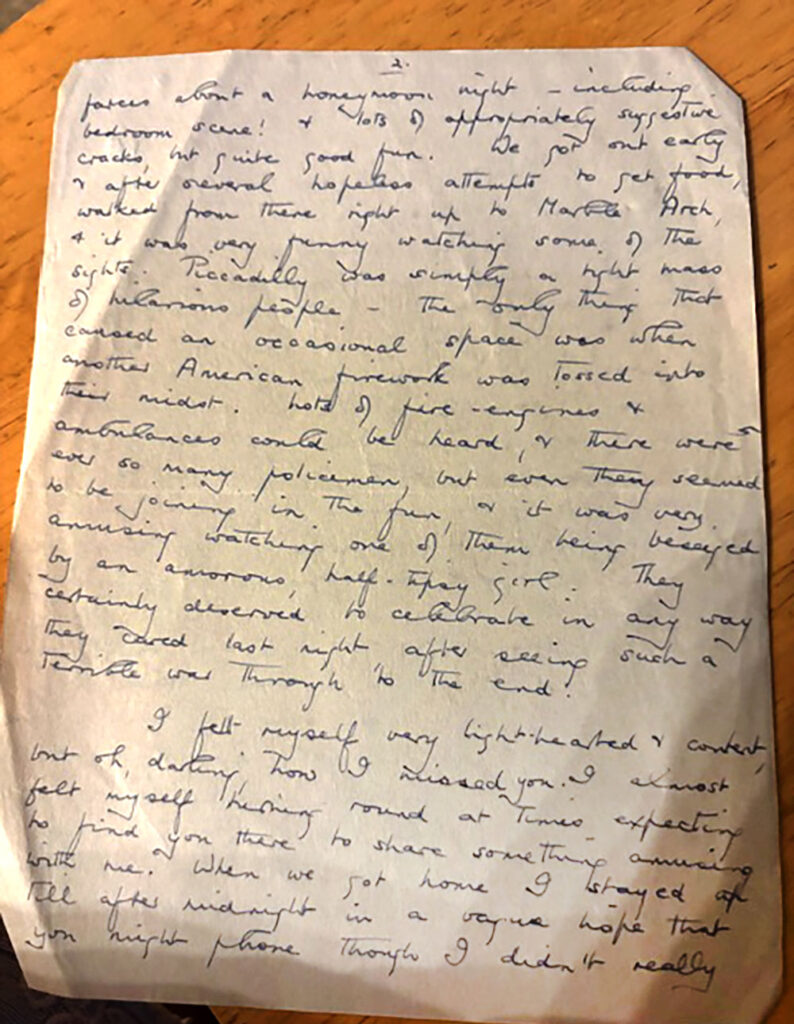 2.
farces about a honeymoon night - including
bedroom scene! & lots of appropriately suggestive
cracks, but quite good fun. We got out early
& after several hopeless attempts to get food,
walked from there right up to Marble Arch,
& it was very funny watching some of the
sights. Piccadilly was simply a tight mass
of hilarious people - the only thing that
caused an occasional space was when
another American firework was tossed into
their midst. Lots of fire-engines &
ambulances could be heard, & there were
ever so many policemen, but even they seemed
to be joining in the fun, & it was very
amusing watching one of them being beseiged
by an amorous, half-tipsy girl. They
certainly deserved to celebrate in any way
they cared last night after seeing such a
terrible war through to the end!
I felt myself very light-hearted & content,
but oh, darling, how I missed you. I almost
felt myself turning round at times expecting
to find you there to share something amusing
with me. When we got home I stayed up
till after midnight in a vague hope that
you might phone though I didn't really